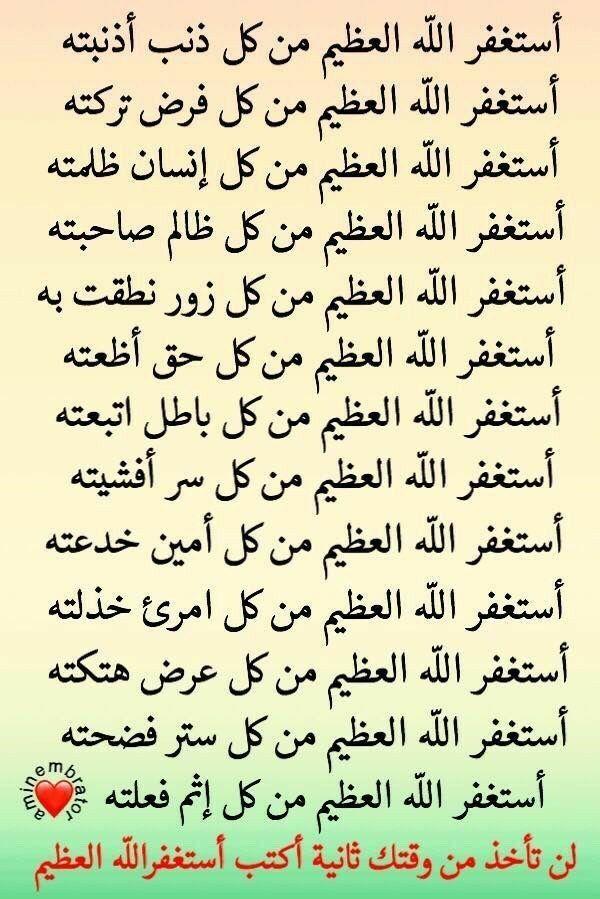 أستغفر الله العظيم من كل ذنب أذنبته
أستغفر الله العظيم من كل فرض تركته
أستغفر الله العظيم من كل إنسان ظلمته
أستغفر الله العظيم من كل ظالم صاحبته
أستغفر الله العظيم من كل زور نطقت به
أستغفر الله العظيم من كل حق أظعته
أستغفر الله العظيم من كل باطل اتبعته
أستغفر الله العظيم من كل سر أفشيته
أستغفر الله العظيم من كل أمين خدعته
أستغفر الله العظيم من كل امرئ خذلته
أستغفر الله العظيم من كل عرض هتكته
أستغفر الله العظيم من كل ستر فضحته
أستغفر الله العظيم من كل إثم فعلته
aminembrator
لن تأخذ من وقتك ثانية أكتب أستغفرالله العظيم